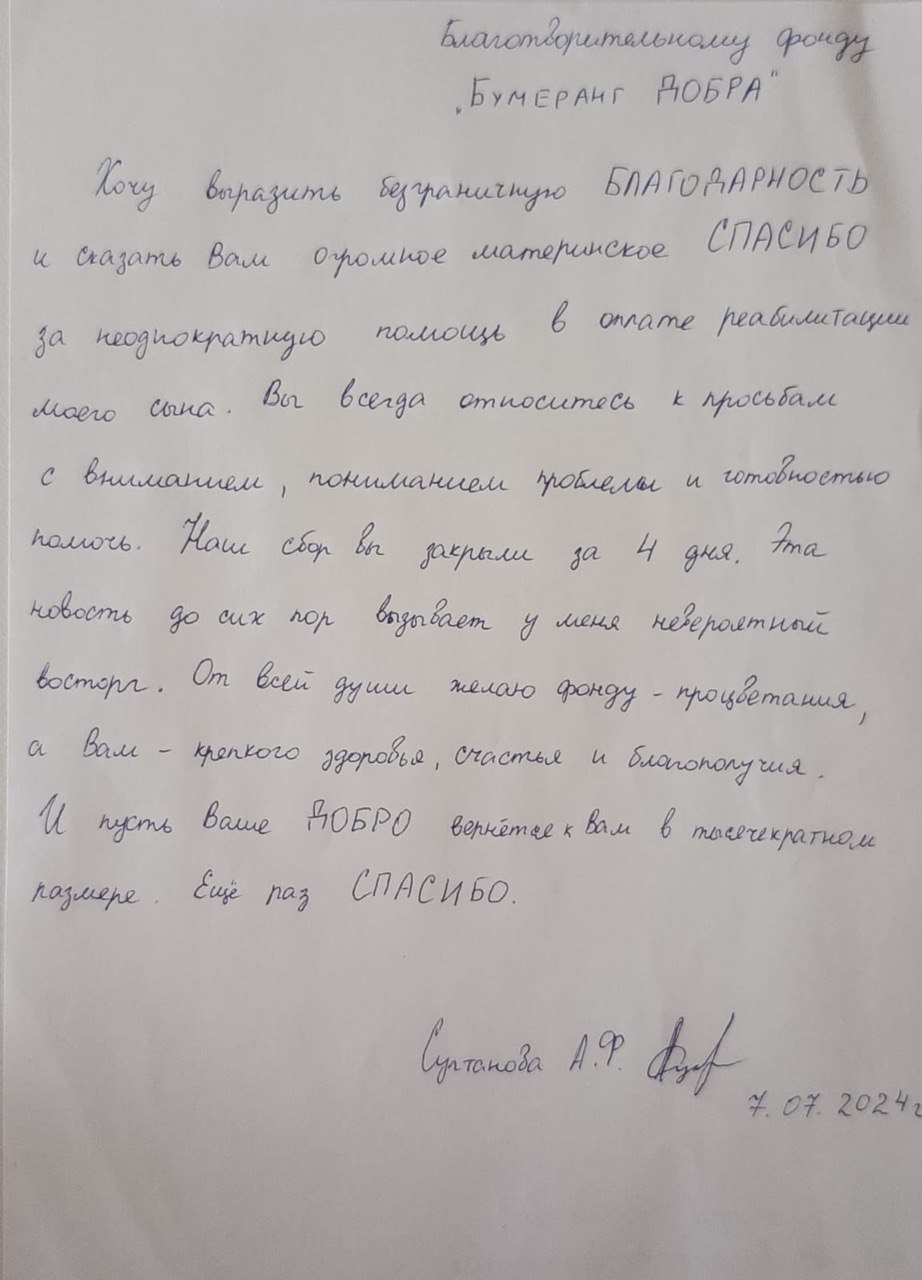 Благотворительному фонду
„Бумеранг ДОБРА"
Хочу выразить безграничную БЛАГОДАРНОСТЬ
и сказать Вам огромное материнское СПАСИБО
за неоднократную помощь в оплате реабилитации
моего сына. Вы всегда относитесь к просьбам
с вниманием, пониманием проблемы и готовностью
помочь. Наш сбор вы закрыли за 4 дня. Эта
новость до сих пор вызывает у меня невероятный
восторг. От всей души желаю фонду - процветания,
а Вам - крепкого здоровья, счастья и благополучия.
И пусть Ваше ДОБРО вернётся к Вам в тысячекратном
размере. Ещё раз СПАСИБО.
Султанова А.Ф.
7.07.2024г